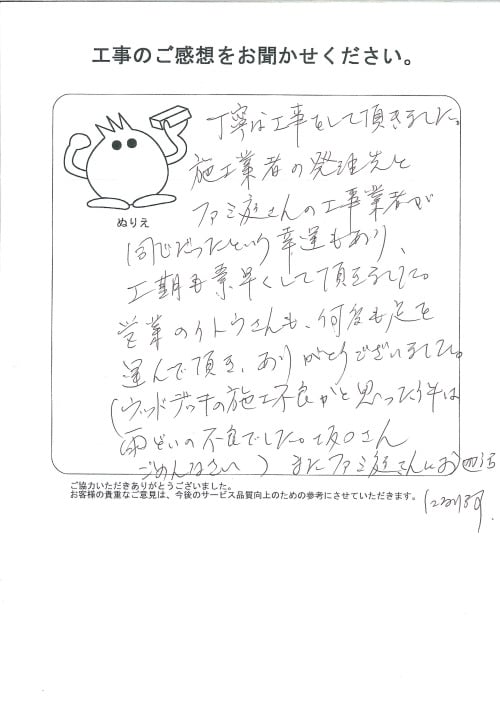 工事のご感想をお聞かせください。
丁寧な工事をして頂きました。
施工業者の発注先と
ファミ庭さんの工事業者が
ぬりえ
同じだったという幸運もあり、
工期も素早くして頂きました。
営業のイトウさんも、何度も足を
運んで頂き、ありがとうございました。
(ウッドデッキの施工不良かと思った件は
雨どいの不良でした。坂口さん
ごめんなさい) またファミ庭さんにお世話
になります.
ご協力いただきありがとうございました。
お客様の貴重なご意見は、今後のサービス品質向上のための参考にさせていただきます。